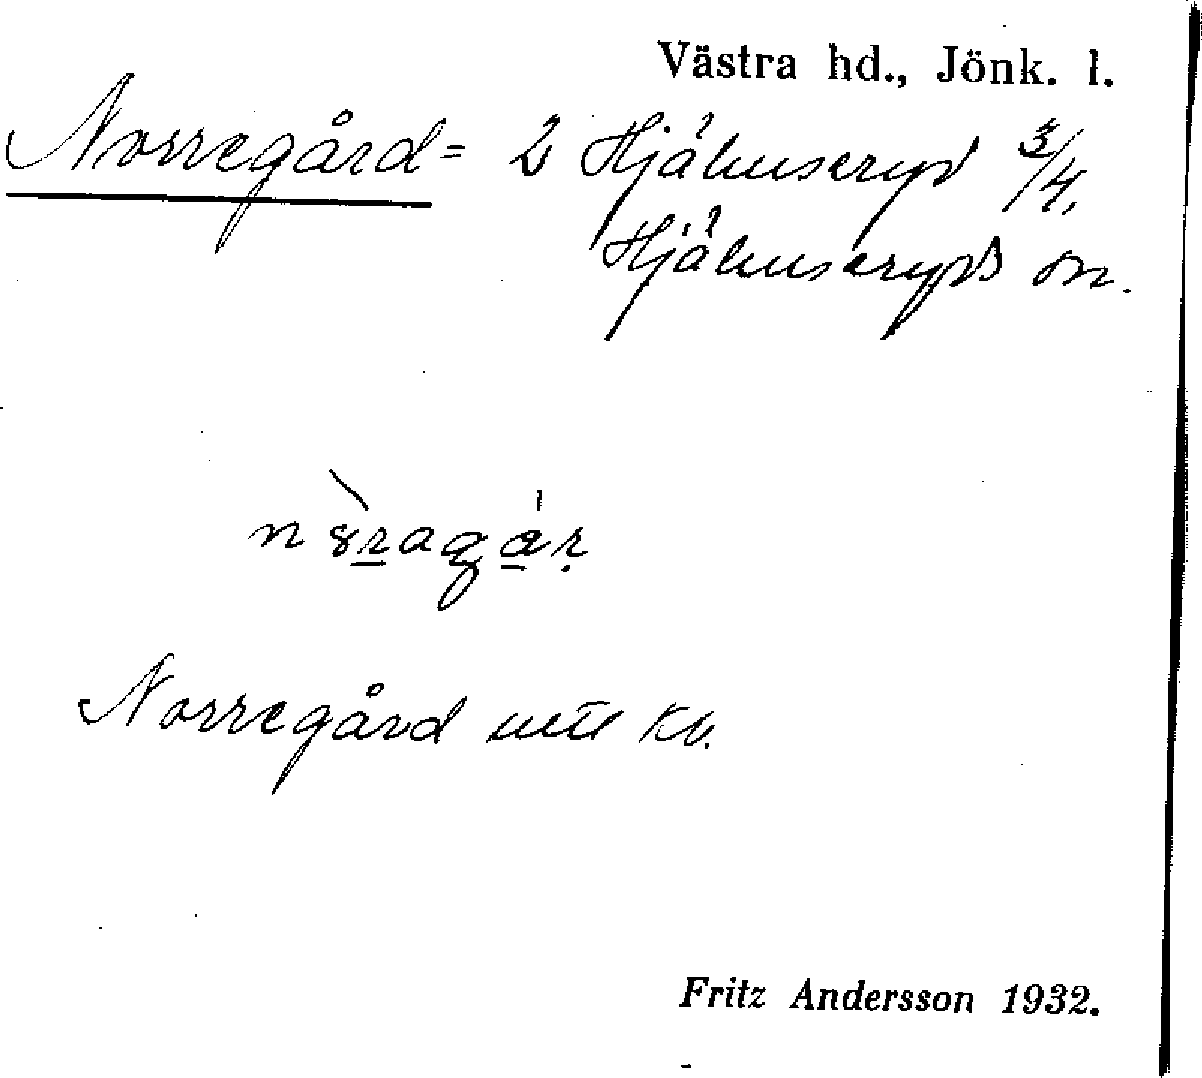 Västra hd., Jönk. l.
Norregård = 2 Hjälmseryd 3/4,
Hjälmseryds sn.
Norregård utt kv.
Fritz Andersson 1932.